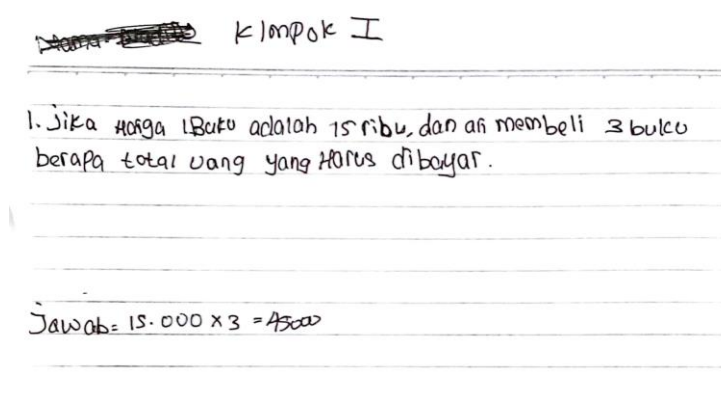 Klompok I
1. Jika Harga 1 Buku adalah 15 ribu, dan ari membeli 3 buku
berapa total uang yang Harus dibayar.
Jawab = 15.000 x 3 = 45000